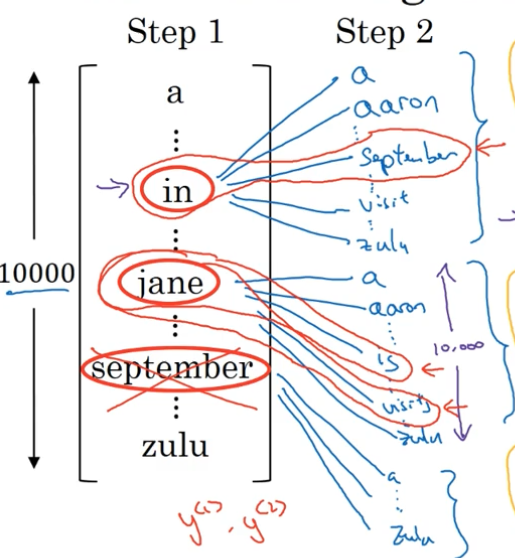 Step 1
Step 2
a
⋮
in
⋮
jane
⋮
september
⋮
zulu
10000
a
aaron
⋮
September
⋮
visit
⋮
zulu
a
aaron
⋮
is
visits
zulu
10,000
a
⋮
zulu
y<1>, y<2>